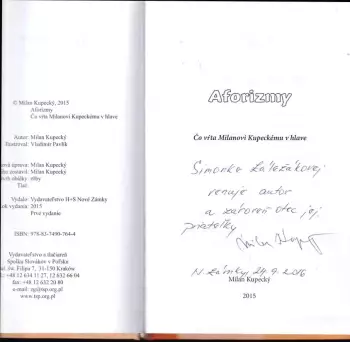 © Milan Kupecký, 2015
Aforizmy
Čo vŕta Milanovi Kupeckému v hlave
Autor: Milan Kupecký
Ilustroval: Vladimír Pavlík
úprava: Milan Kupecký
zostavil: Milan Kupecký
obálky: elby
Tlač:
Vydalo: Vydavateľstvo H+S Nové Zámky
Rok vydania: 2015
Prvé vydanie
ISBN: 978-83-7490-764-4
Vydavateľstvo a tlačiareň
Spolku Slovákov v Poľsku
św. Filipa 7, 31-150 Kraków
+48 12 634 11 27, 12 632 66 04
fax: +48 12 632 20 80
e-mail: zg@tsp.org.pl
www.tsp.org.pl
Aforizmy
Čo vŕta Milanovi Kupeckému v hlave
Simonke
venuje autor
a zároveň otec jej
priateľky
N. Zámky 24.9.2016
Milan Kupecký
2015